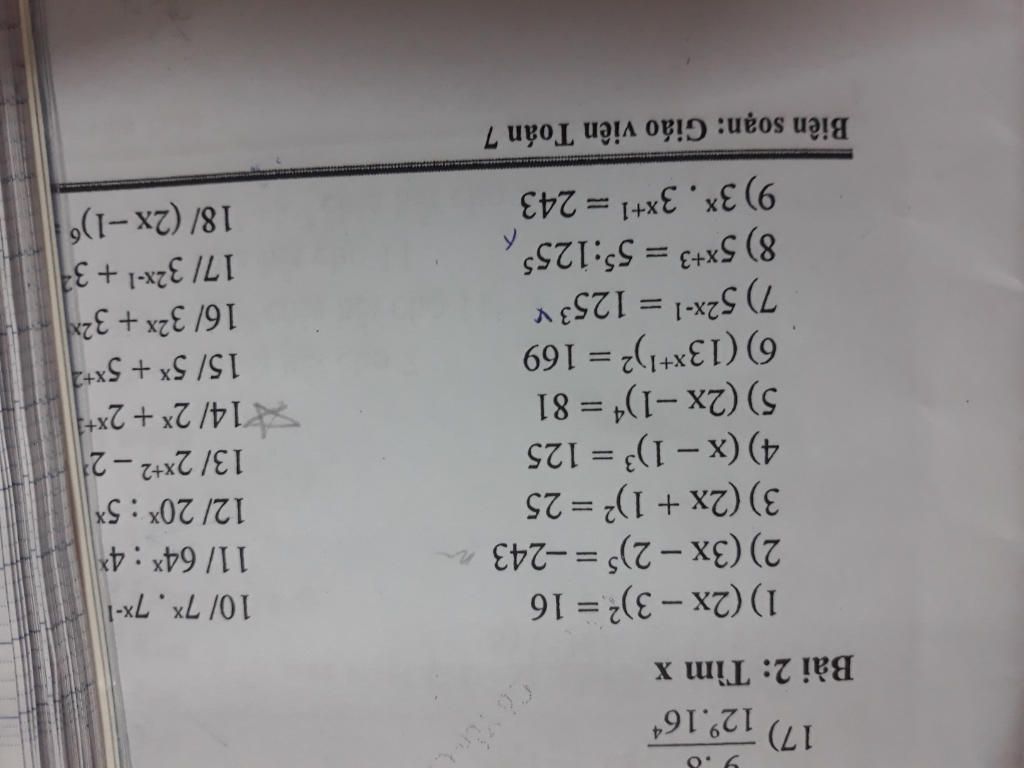 9 . 8
17) 12⁹.16⁴
Bài 2: Tìm x
1) (2x − 3)² = 16
2) (3x − 2)⁵ = −243
3) (2x + 1)² = 25
4) (x − 1)³ = 125
5) (2x −1)⁴ = 81
6) (13ˣ⁺¹)² = 169
7) 5²ˣ⁻¹ = 125³
8) 5ˣ⁺³ = 5⁵:125⁵
9) 3ˣ . 3ˣ⁺¹ = 243
10/ 7ˣ . 7ˣ⁻¹
11/ 64ˣ : 4ˣ
12/ 20ˣ : 5ˣ
13/ 2ˣ⁺² − 2ˣ
14/ 2ˣ + 2ˣ⁺
15/ 5ˣ + 5ˣ⁺²
16/ 3²ˣ + 3²ˣ
17/ 3²ˣ⁻¹ + 3²
18/ (2x −1)⁶
Biên soạn: Giáo viên Toán 7